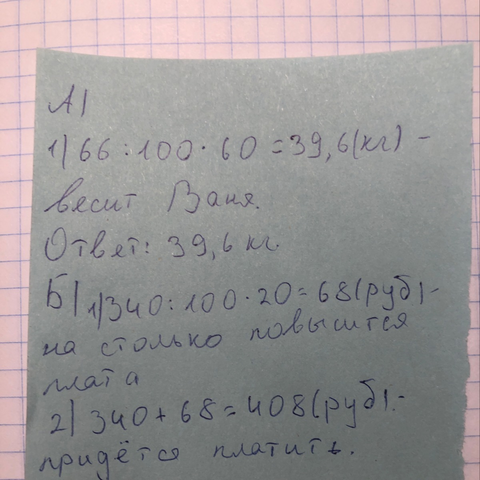 А)
1) 66 : 100 · 60 = 39,6(кг) -
весит Ваня.
Ответ: 39,6 кг.
Б) 1)340 : 100 · 20 = 68(руб)-
на столько повысится
плата
2) 340 + 68 = 408(руб).-
придётся платить.